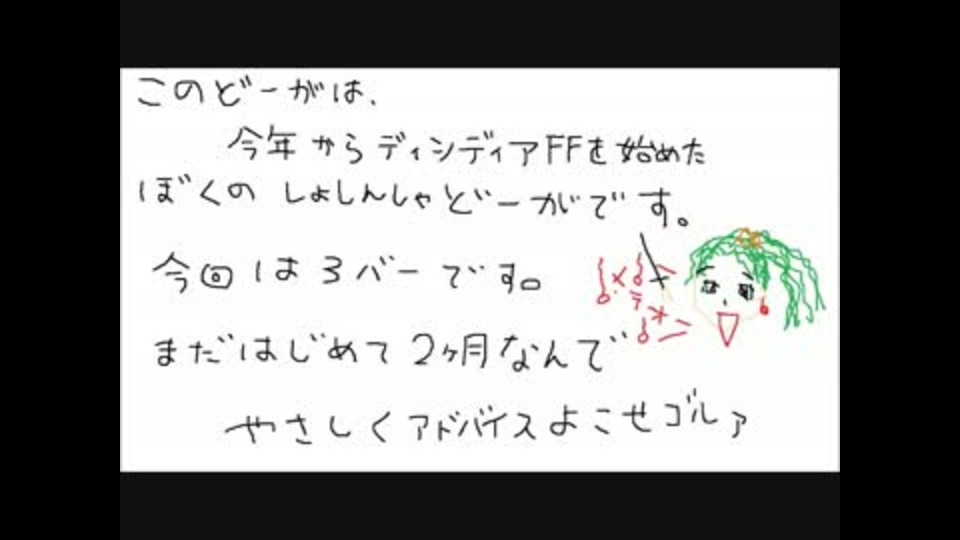 このどーがは、
今年からディシディアFFを始めた
ぼくのしょしんしゃどーがです。
今回は3バーです。
まだはじめて2ヶ月なんで
やさしくアドバイスよこせゴルァ